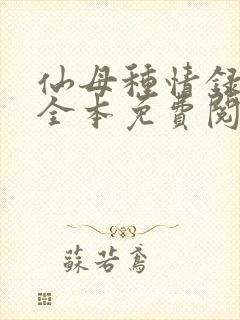 仙母種情録
全本免費閱
蘇若鳶